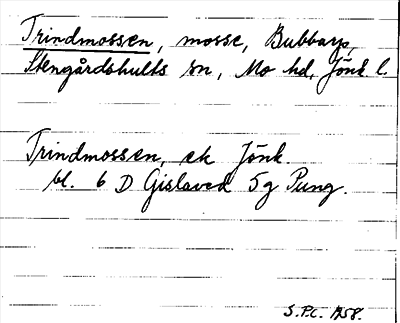 Trindmossen, mosse, Bubbarp,
Stengårdshults sn, Mo hd, Jönk l.
Trindmossen, ek Jönk.
bl. 6 D Gislaved 5g Pung.
S.P.C. 1958.